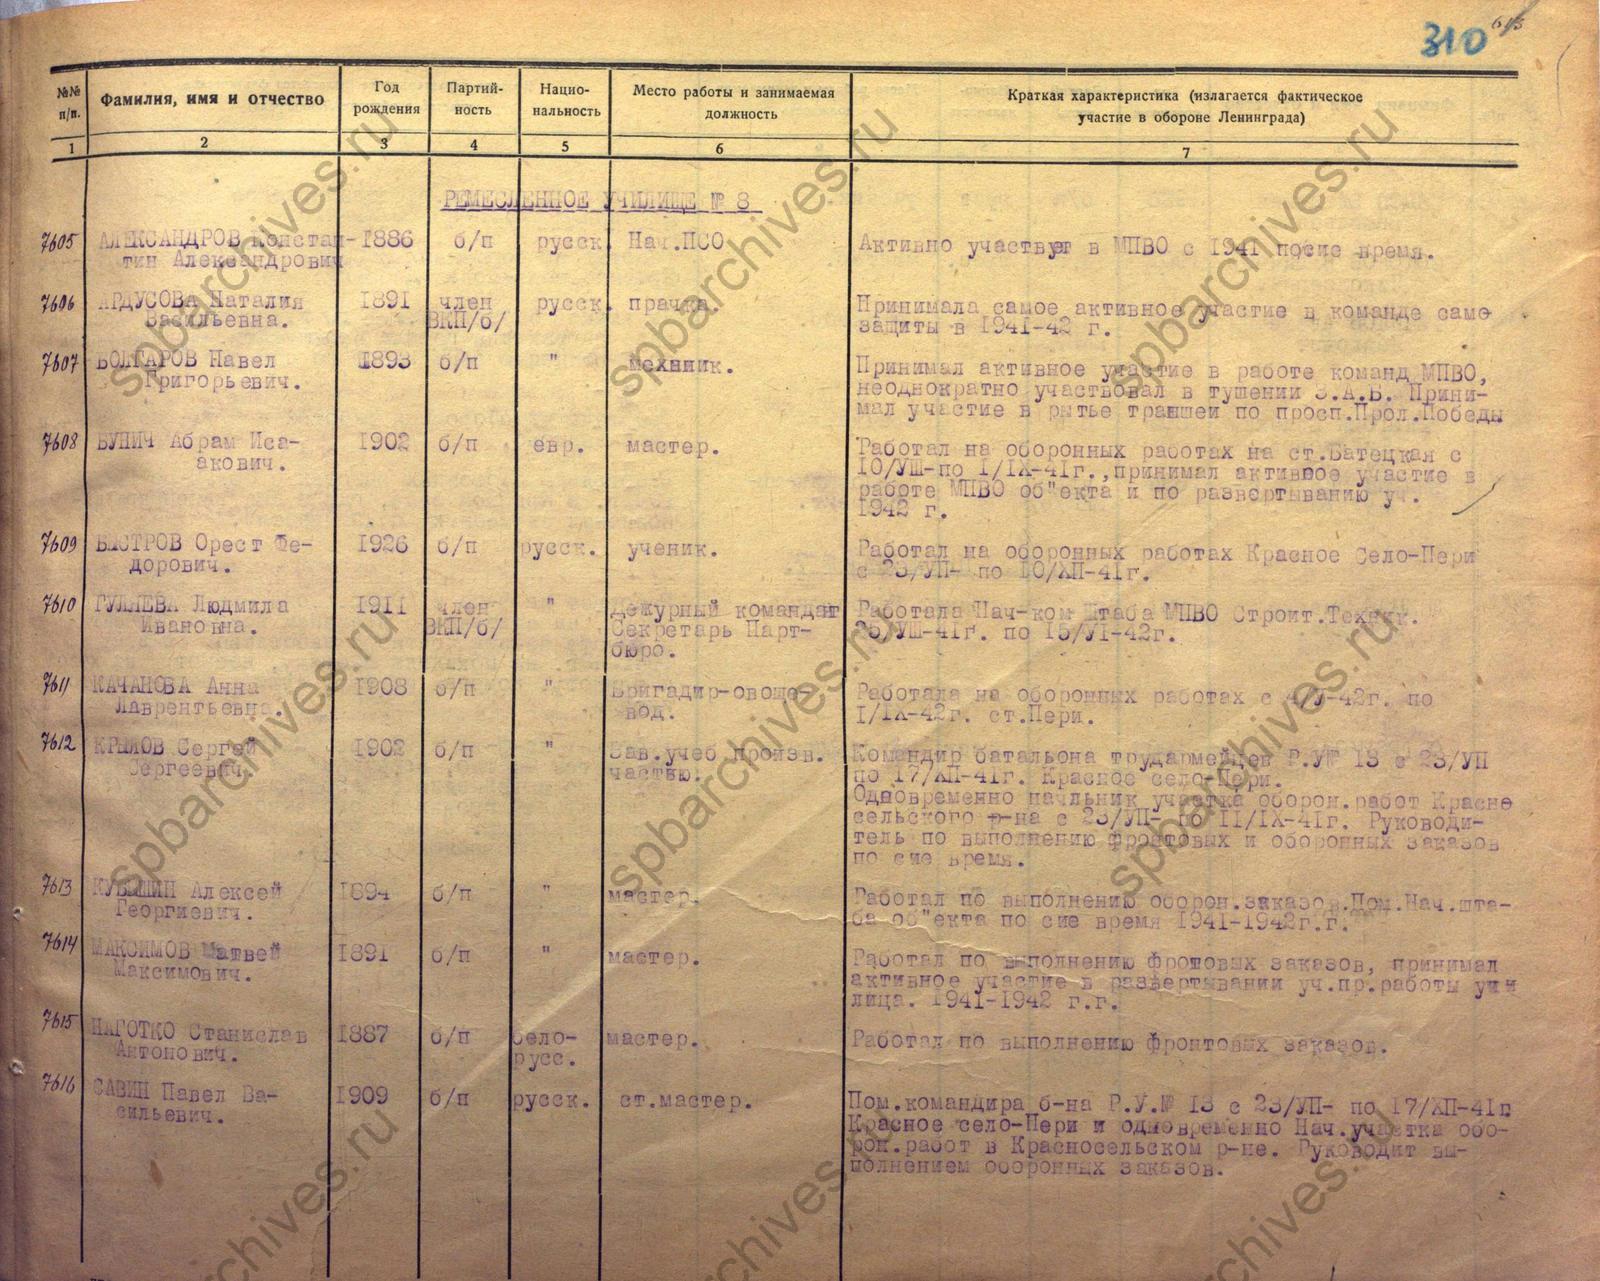 310
№№ п/п. Фамилия, имя и отчество Год рождения Партий-ность Нацио-нальность Место работы и занимаемая должность Краткая характеристика (излагается фактическое участие в обороне Ленинграда)
1 2 3 4 5 6 7
РЕМЕСЛЕННОЕ УЧИЛИЩЕ № 8
7605 АЛЕКСАНДРОВ Констан- 1886 б/п русск. Нач.ПСО Активно участвует в МПВО с 1941 посие время.
тин Александрович
7606 АРДУСОВА Наталия 1891 член русск. прачка. Принимала самое активное участие в команде само
Васильевна. ВКП/б/ защиты в 1941-42 г.
7607 БОЛГАРОВ Павел 1893 б/п " механик. Принимал активное участие в работе команд МПВО,
Григорьевич. неоднократно участвовал в тушении З.А.Б. Прини-
мал участие в рытье траншеи по просп.Прол.Победы
7608 БУНИЧ Абрам Иса- 1902 б/п евр. мастер. Работал на оборонных работах на ст.Батецкая с
акович. 10/УШ-по 1/IX-41г.,принимал активное участие в
работе МПВО об"екта и по развертыванию уч.
1942 г.
7609 БЫСТРОВ Орест Фе- 1926 б/п русск. ученик. Работал на оборонных работах Красное Село-Пери
дорович. с 23/УП- по 10/ХП-41г.
7610 ГУЛЯЕВА Людмила 1911 член " Дежурный комендант Работала Нач-ком Штаба МПВО Строит.Техник.
Ивановна. ВКП/б/ Секретарь Парт- 25/УШ-41г. по 15/УI-42г.
бюро.
7611 КАЧАНОВА Анна 1908 б/п " Бригадир-овоще- Работала на оборонных работах с 4/У-42г. по
Лаврентьевна. вод. I/IX-42г. ст.Пери.
7612 КРЫЛОВ Сергей 1902 б/п " Зав.учеб произв. Командир батальона трудармейцев Р.У№ 13 с 23/УП
Сергеевич. частью. по 17/ХП-41г. Красное село-Пери.
Одновременно начльник участка оборон.работ Красно
сельского р-на с 23/УП- по II/IX-41г. Руководи-
тель по выполнению фронтовых и оборонных заказов
по сие время.
7613 КУБЫШИН Алексей 1894 б/п " мастер. Работал по выполнению оборон.заказов.Пом.Нач.шта-
Георгиевич. ба об"екта по сие время 1941-1942г.г.
7614 МАКСИМОВ Матвей 1891 б/п " мастер. Работал по выполнению фронтовых заказов, принимал
Максимович. активное участие в развертывании уч.пр.работы учи
лища. 1941-1942 г.г.
7615 НАГОТКО Станислав 1887 б/п бело- мастер. Работал по выполнению фронтовых заказов.
Антонович. русс.
7616 САВИН Павел Ва- 1909 б/п русск. ст.мастер. Пом.командира б-на Р.У.№ 13 с 23/УП- по 17/ХП-41г
сильевич. Красное село-Пери и одновременно Нач.участка обо-
рон.работ в Красносельском р-не. Руководит вы-
полнением оборонных заказов.
spbarchives.ru